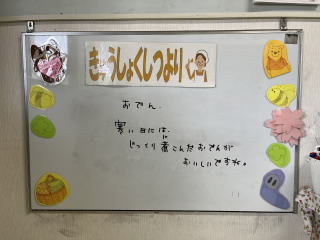 きゅうしょくしつより
おでん.
寒い日には、
じっくり煮こんだおでんが
に
おいしいですね。